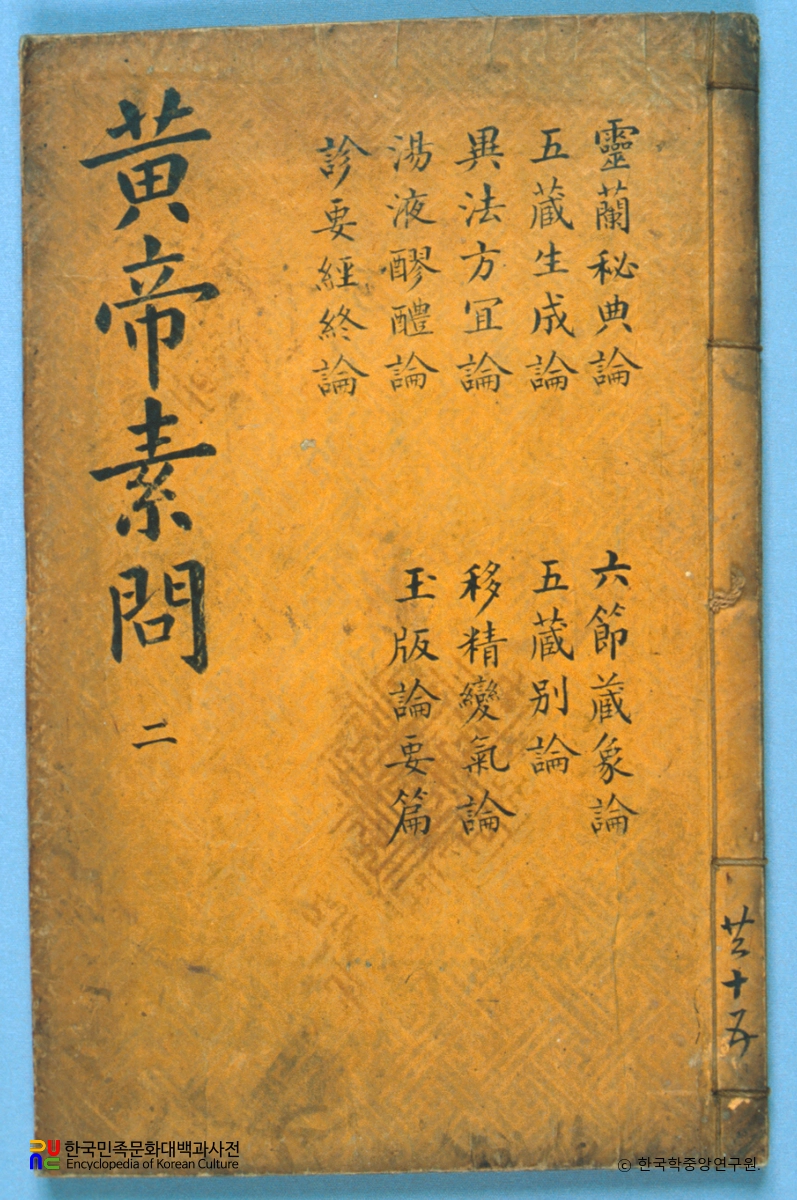 共十五
靈蘭秘典論 六節蔵象論
五蔵生成論 五蔵別論
異法方冝論 移精變氣論
湯液醪醴論 玉版論要篇
診要經終論
黄帝素問 二
한국민족문화대백과사전
Encyclopedia of Korean Culture
© 한국학중앙연구원.